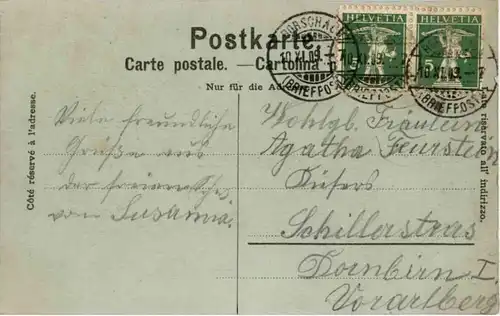 Postkarte.
Carte postale. — Cartolina
Nur für die
HELVETIA HELVETIA
5 5
RORSCHACH
10.XI.09.-7
(BRIEFPOST)
10.XI.09.-7
(BRIEFPOST)
Côté réservé à l'adresse.
riservato all' indirizzo.
Viele freundliche
Grüße aus
der freien Schweiz
von Susanna.
Wohlgb. Fräulein
Agatha Feurstein
Küfers
Schillerstras
Dornbirn I
Vorarlberg